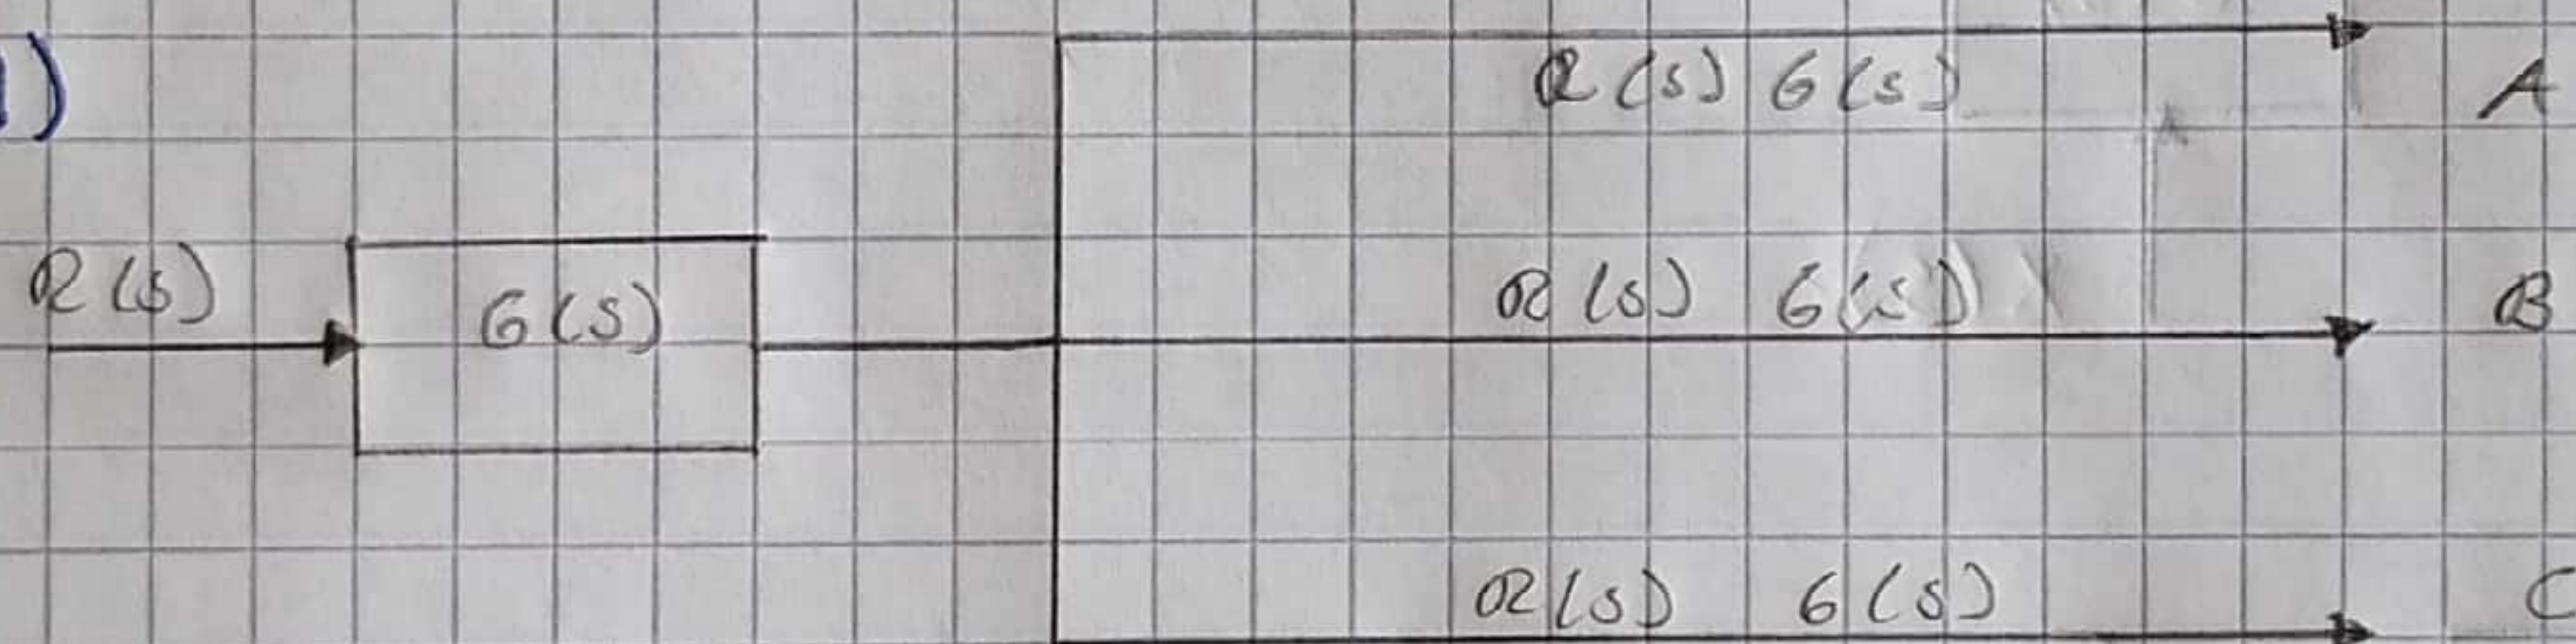 )
R(s) G(s)
A
R(s)
G(s)
R(s) G(s)
B
R(s) G(s)
C